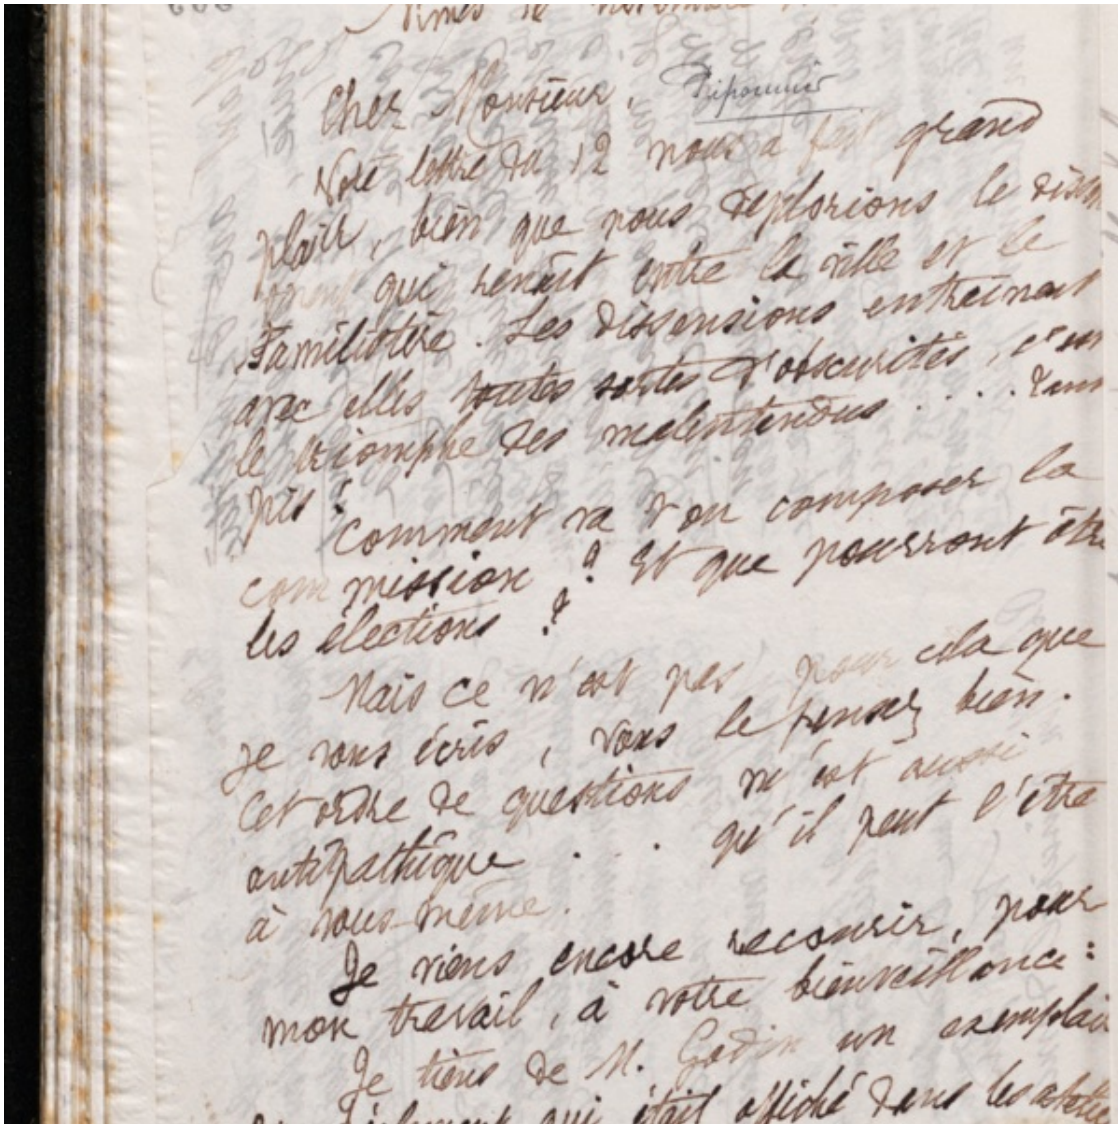 Nimes le novembre
Cher Monsieur, Piponnier
Votre lettre du 12 nous a fait grand
plaisir, bien que nous déplorions le dissen
qui renaît entre la ville et le
Familistère. Les dissensions entraînent
avec elles toutes sortes d'obscurités, c'est
le triomphe des malentendus . . . . Tant
pis !
Comment va t'on composer la
commission ? Et que pourront être
les élections ?
Mais ce n'est pas pour cela que
je vous écris, vous le pensez bien.
Cet ordre de questions m'est aussi
antipathique . . . qu'il peut l'être
à vous-même.
Je viens encore recourir, pour
mon travail, à votre bienveillance :
Je tiens de M. Godin un exemplaire
qui était affiché dans les ateliers